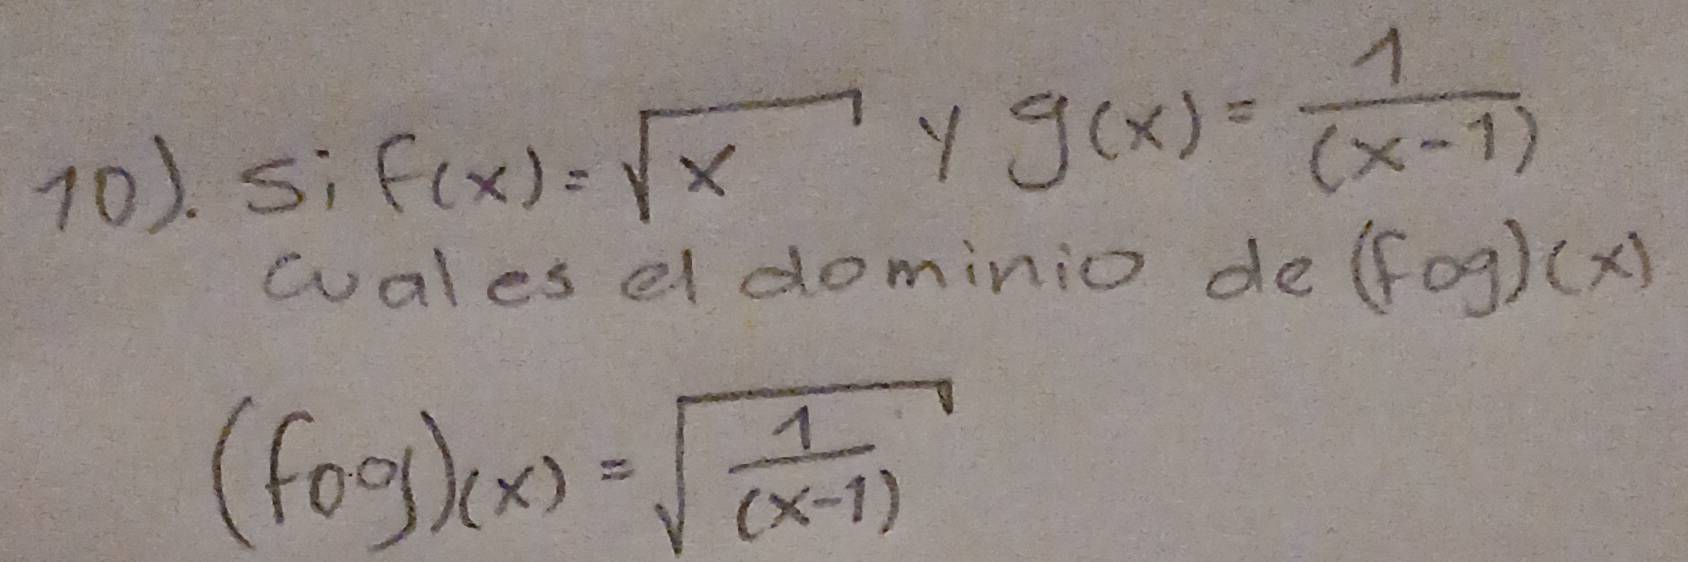 10). Si f(x)=√x y g(x)= 1/(x-1)
cual es el dominio de (fog)(x)
(fog)(x) = √(1/(x-1))